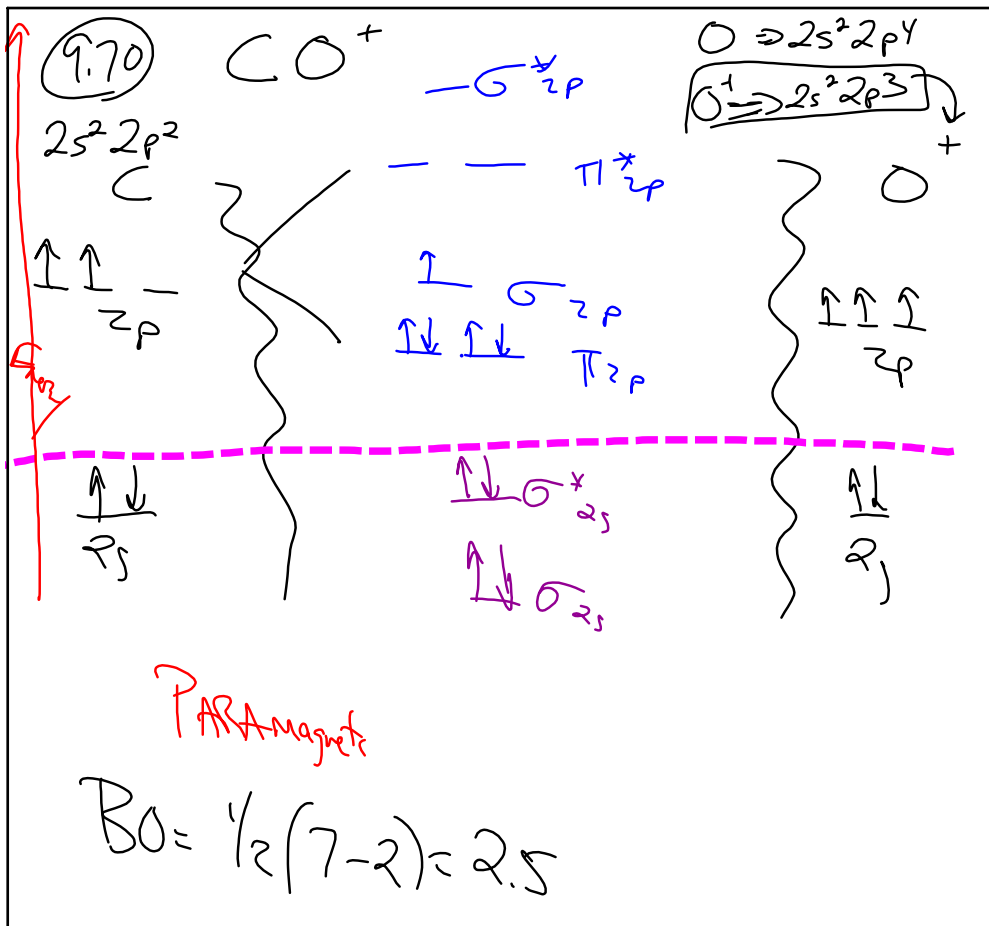 9.70 CO⁺
O ⇒ 2s² 2p⁴
O⁺ ⇒ 2s² 2p³
2s² 2p²
C
O⁺
σ*2p
π*2p
↑ ↑ _
2p
↑ σ2p
↑↓ ↑↓ π2p
↑ ↑ ↑
2p
↑↓
2s
↑↓ σ*2s
↑↓ σ2s
↑↓
2s
PARAmagnetic
BO = 1/2(7-2) = 2.5